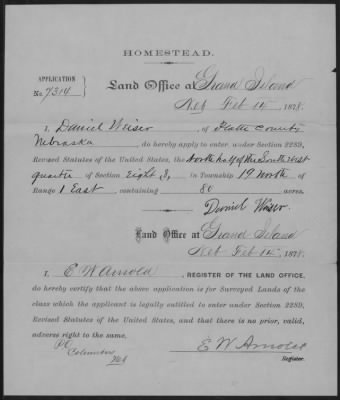 HOMESTEAD.
APPLICATION
No. 7314
Land Office at Grand Island
Neb Feb 14, 1878.
I, Daniel Weiser, of Platte County
Nebraska do hereby apply to enter under Section 2289,
Revised Statutes of the United States, the North half of the South West
quarter of Section Eight 8, in Township 19 North of
Range 1 East, containing 80 acres.
Daniel Weiser.
Land Office at Grand Island
Neb Feb 14, 1878.
I, E W Arnold, REGISTER OF THE LAND OFFICE,
do hereby certify that the above application is for Surveyed Lands of the
class which the applicant is legally entitled to enter under Section 2289,
Revised Statutes of the United States, and that there is no prior, valid,
adverse right to the same.
P O
Columbus
Neb
E W Arnold
Register.